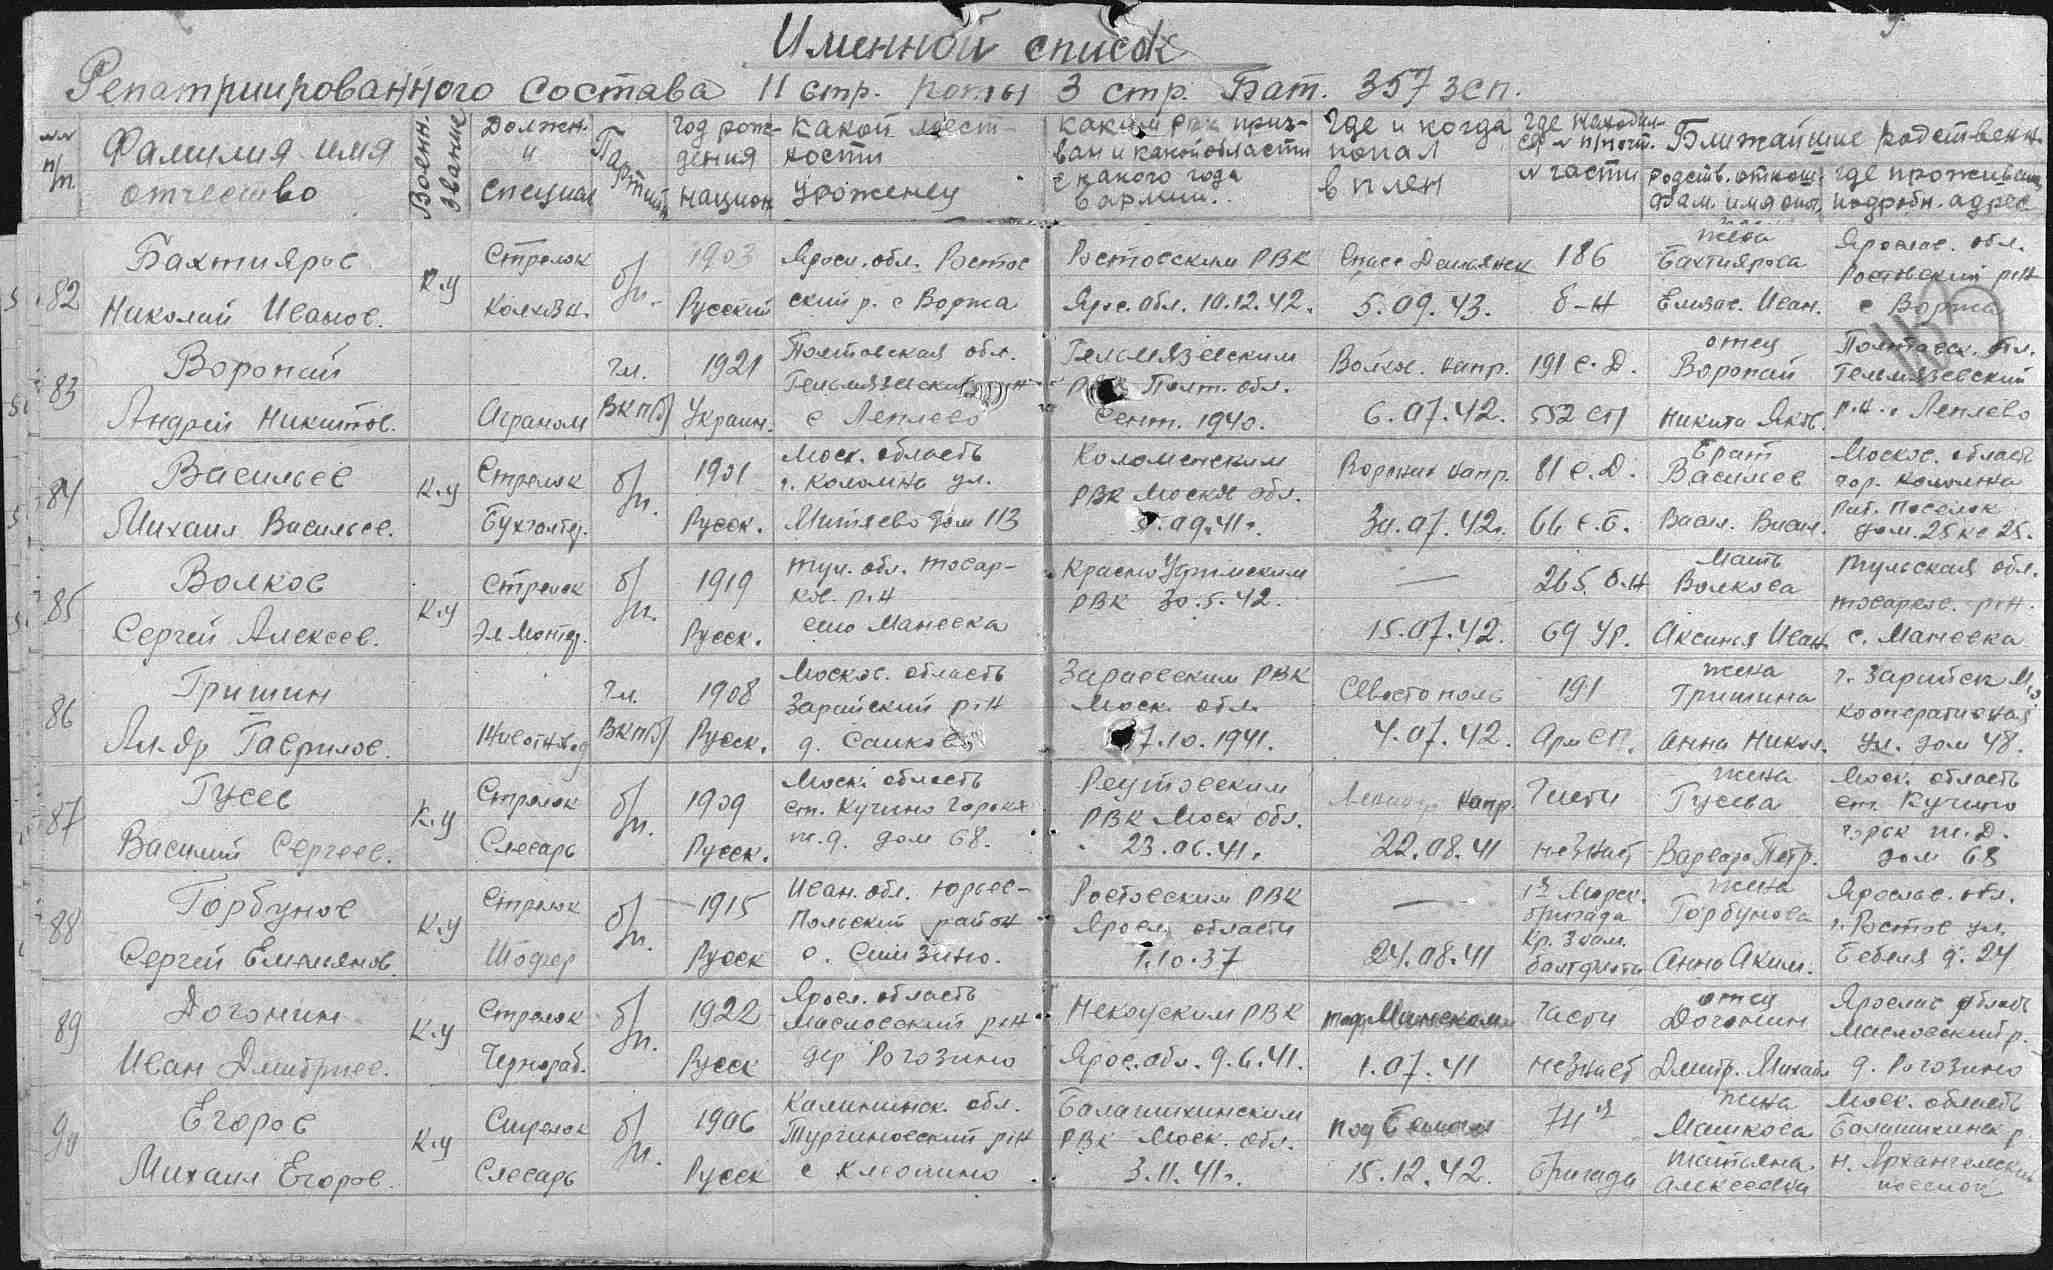 Именной список
Репатриированного состава 11 стр. роты 3 стр. Бат. 357 зсп.
№№ п/п
Фамилия имя
отчество
Военн. звание
Должн.
и
специал
Партийн
Год рож-
дения
национ
Какой мест-
ности
уроженец
Каким рвк приз-
ван и какой области
с какого года
в армии.
Где и когда
попал
в плен
Где находил
ся № п/почт.
№ части
Ближайшие родственн.
родств. отнош.
фам. имя отч.
где проживают
подробн. адрес
82
Бахтияров
Николай Иванов.
К.у
Стрелок
Колхозн.
б/п.
1903
Русский
Яросл. обл. Ростов
ский р. с Воржа
Ростовским РВК
Яро. обл. 10.12.42.
Спасс Деменск
5.09.43.
186
б-н
жена
Бахтиярова
Елизав. Иван.
Яросл. обл.
Ростовский р-н
с Воржа
83
Воропай
Андрей Никитов.
Агроном
чл.
ВКП(б)
1921
Украин.
Полтавская обл.
Гельмязевский р-н
с Леплево
Гельмязевским
РВК Полт. обл.
Сент. 1940.
Волхов. напр.
6.07.42.
191 с.д.
552 сп
отец
Воропай
Никита Яков.
Полтавск. обл.
Гельмязевский
р.н. с Леплево
84
Васильев
Михаил Васильев.
к.у
Стрелок
Бухгалтер.
б/п.
1901
Русск.
Моск. область
г. Коломна ул.
Митяево дом 113
Коломенским
РВК Москв обл.
.09.41г.
Воронеж напр.
30.07.42г.
81 с.д.
66 с.б.
брат
Васильев
Васил. Васил.
Москов. область
гор. Коломна
раб. поселок
дом. 25 кв 25.
85
Волков
Сергей Алексеев.
к.у
Стрелок
Эл монтер.
б/п.
1919
Русск.
Тул. обл. Товар-
ков. р-н
село Манеевка
Красно Уфимским
РВК 30.5.42.
—
15.07.42.
265. б.н
69 Ур.
Мать
Волкова
Аксинья Иван.
Тульская обл.
Товарков. р-н.
с. Манеевка
86
Гришин
Ал-др Гаврилов.
Животновод
чл.
ВКП(б)
1908
Русск.
Москов. область
Зарайский р-н
д. Санково
Зарайским РВК
Моск. обл.
7.10.1941.
Севастополь
4.07.42.
191
Арм СП.
жена
Гришина
Анна Никол.
г. Зарайск М.о
Кооперативная
ул. дом 48.
87
Гусев
Василий Сергеев.
К.у
Стрелок
Слесарь
б/п.
1909
Русск.
Моск. область
ст. Кучино Горьк
ж.д. дом 68.
Реутовским
РВК Моск обл.
23.06.41.
Ленингр напр.
22.08.41
Части
не знает
жена
Гусева
Варвара Петр.
Моск. область
ст. Кучино
горьк ж.д.
дом 68
88
Горбунов
Сергей Емельянов.
К.у
Стрелок
Шофер
б/п.
1915
Русск
Иван. обл. Юрьев-
Польский район
с. Симзино.
Ростовским РВК
Яросл. области
1.10.37
—
24.08.41
1я Морск.
бригада
Кр. Знам.
балтфлота
жена
Горбунова
Анна Аким.
Ярослав. обл.
г. Ростов ул.
Бебеля д. 24
89
Догонин
Иван Дмитриев.
К.у
Стрелок
Чернораб.
б/п.
1922
Русск
Яросл. область
Масловский р-н
дер Рогозино
Некоуским РВК
Яро. обл. 9.6.41.
под Минском
1.07.41
Части
не знает
отец
Догонин
Дмитр. Михайл
Ярослав область
Масловский р.
д. Рогозино
90
Егоров
Михаил Егоров.
К.у
Стрелок
Слесарь
б/п.
1906
Русск
Калининск. обл.
Тургиновский р-н
с Клеопино
Балашихинским
РВК Моск. обл.
3.11.41г.
под Белым
15.12.42.
74я
бригада
жена
Машкова
Татьяна
Алексеевна
Моск. область
Балашихинск р.
н. Архангельский
поселок